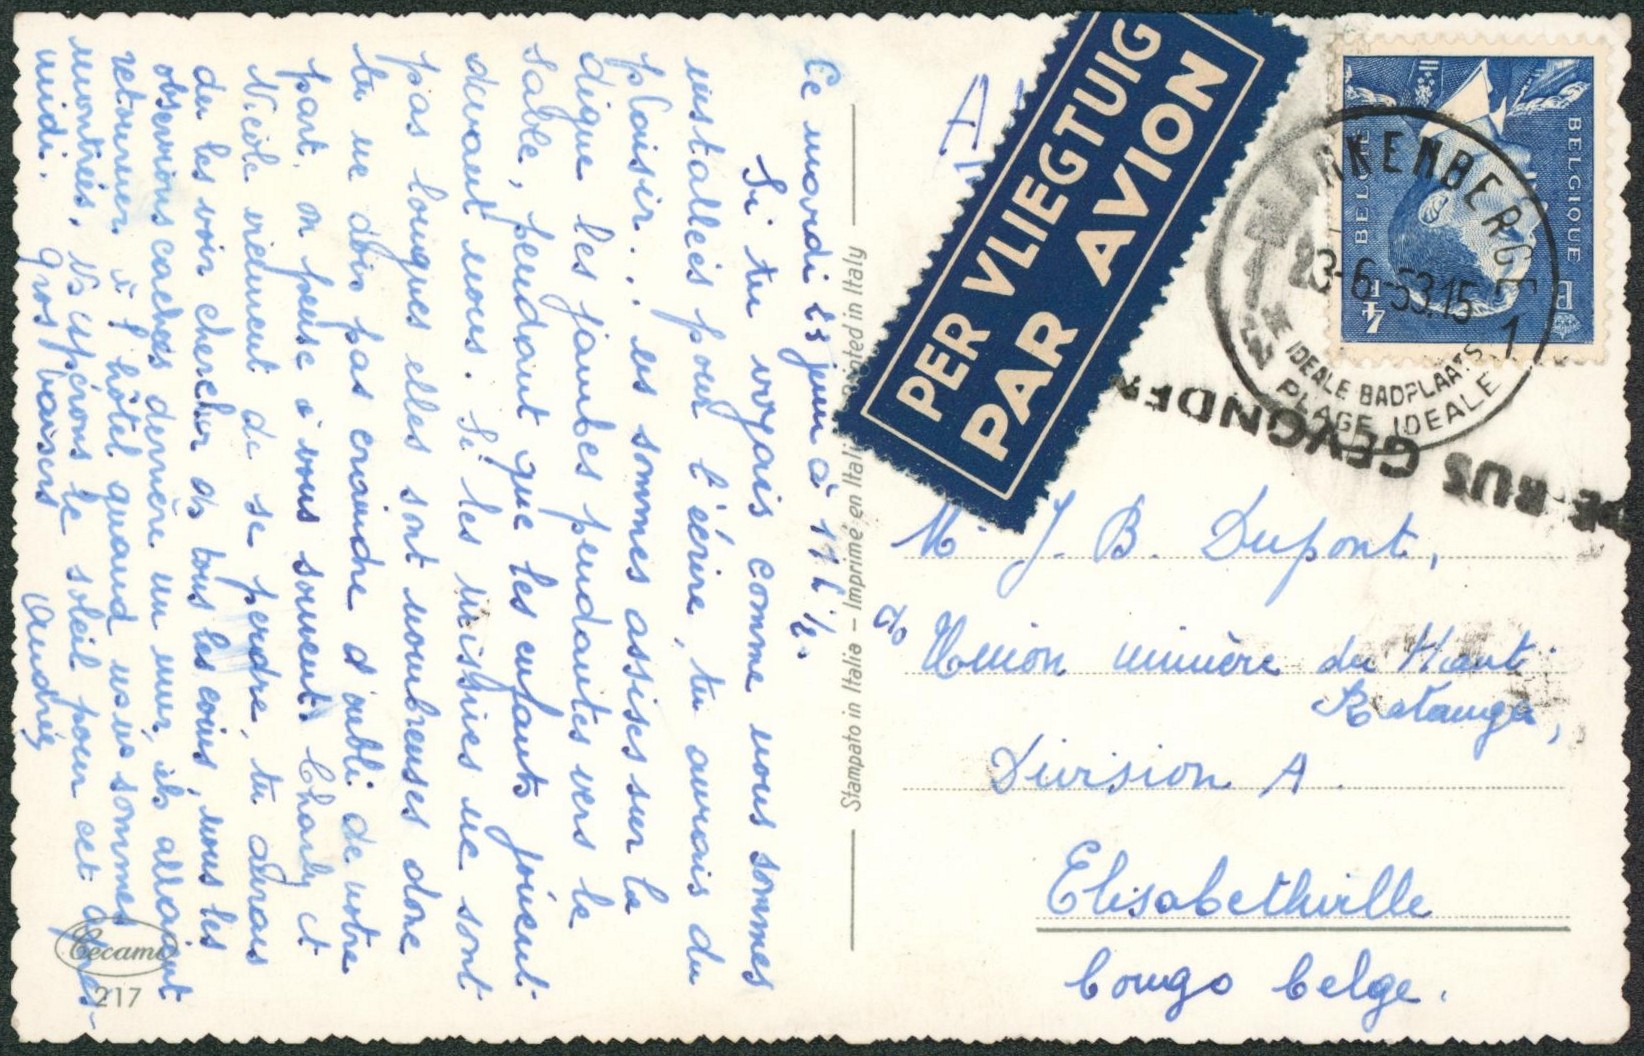 Ce mardi 23 juin à 11 h 1/2.
Si tu voyais comme nous sommes
installées pour t'écrire, tu aurais du
plaisir... ns sommes assises sur la
digue les jambes pendantes vers le
sable, pendant que les enfants jouent
devant nous. Si les missives ne sont
pas longues elles sont nombreuses donc
tu ne dois pas craindre d'oubli de notre
part, on pense à vous souvent. Charly et
Nicole viennent de se perdre, tu aurais
du les voir chercher ds tous les coins, nous les
observions cachées derrière un mur, ils allaient
retourner à l'hôtel quand nous ns sommes
montrées. Ns espérons le soleil pour cet après-
midi. Gros baisers Andrée
Cecami
217
Stampato in Italia – Imprimé en Italie Printed in Italy
PER VLIEGTUIG
PAR AVION
BELGIE BELGIQUE
4F
BLANKENBERGE
23-6-53.15
1
IDEALE BADPLAATS
PLAGE IDEALE
BUS GEVONDEN
Mr J. B. Dupont,
c/o Union minière du Haut
Katanga,
Division A.
Elisabethville
Congo belge.